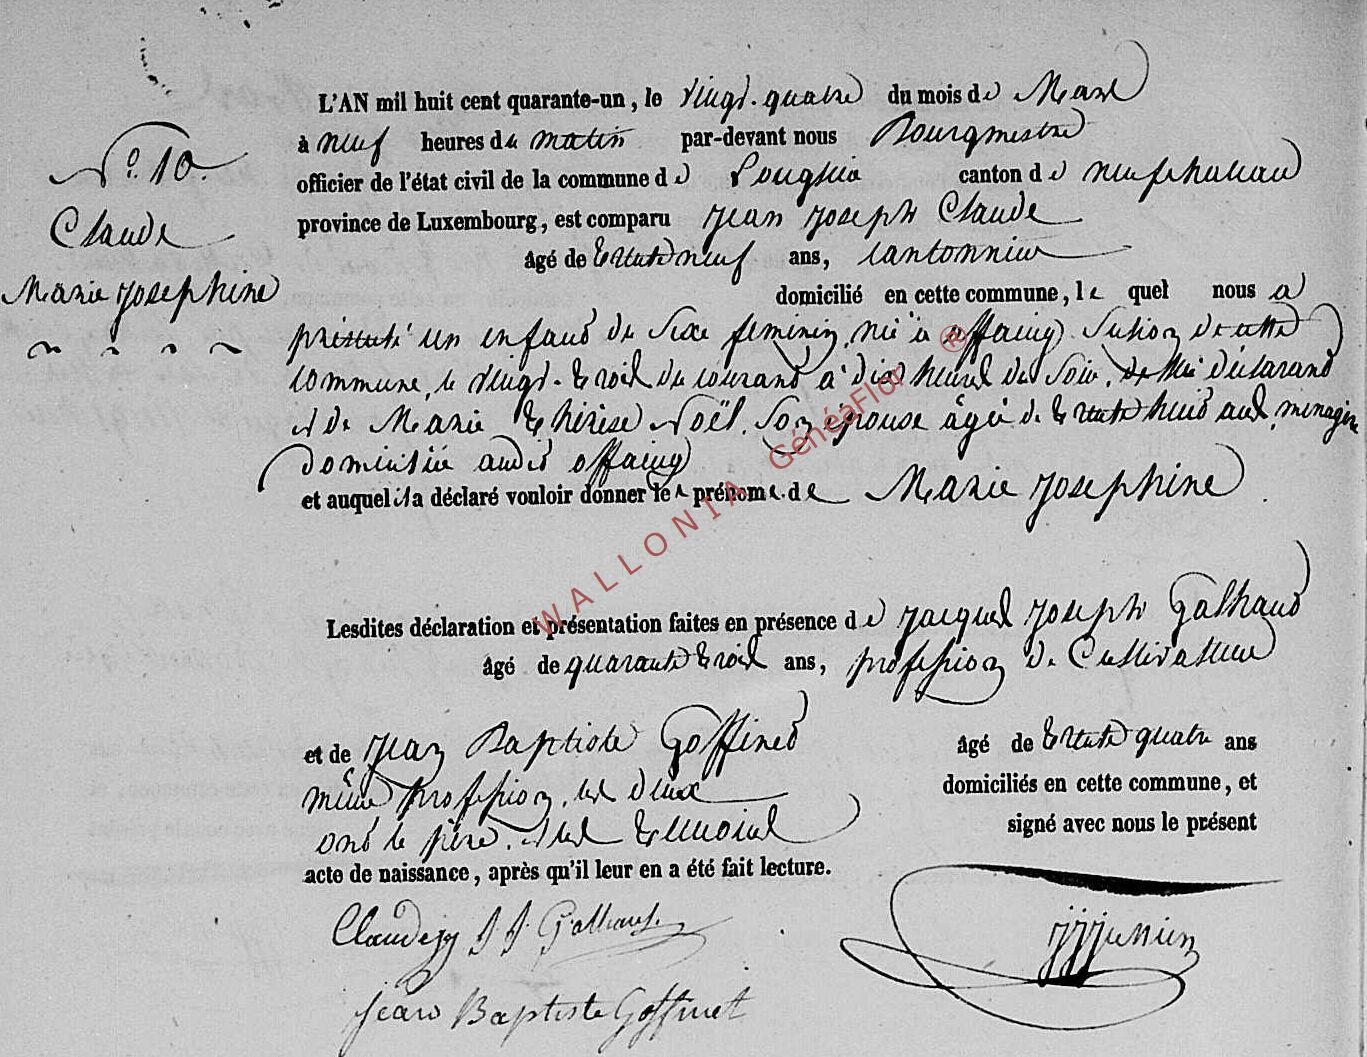 L'AN mil huit cent quarante-un, le vingt-quatre du mois de Mars
à neuf heures du matin par-devant nous Bourgmestre
N° 10.
officier de l'état civil de la commune de Longlier canton de neufchateau
Claude
province de Luxembourg, est comparu jean joseph Claude
âgé de trente neuf ans, cantonnier
Marie josephine
domicilié en cette commune, le quel nous a
présenté un enfant de sexe feminin, née à offaing section de cette
commune, le vingt-trois du courant à dix heures du soir, de lui déclarant
et de Marie thérèse Noël, son épouse âgée de trente huit ans, menagère
domiciliée audit offaing
et auquel il a déclaré vouloir donner les prénoms de Marie josephine
WALLONIA GénéaFlor ®
Lesdites déclaration et présentation faites en présence de jacques joseph Galhaut
âgé de quarante trois ans, profession de Cultivateur
et de jean Baptiste Goffinet âgé de trente quatre ans
même profession, les deux domiciliés en cette commune, et
ont le père, et les temoins signé avec nous le présent
acte de naissance, après qu'il leur en a été fait lecture.
Claude jj J. J. Galhaut
jjjunien
jean Baptiste Goffinet